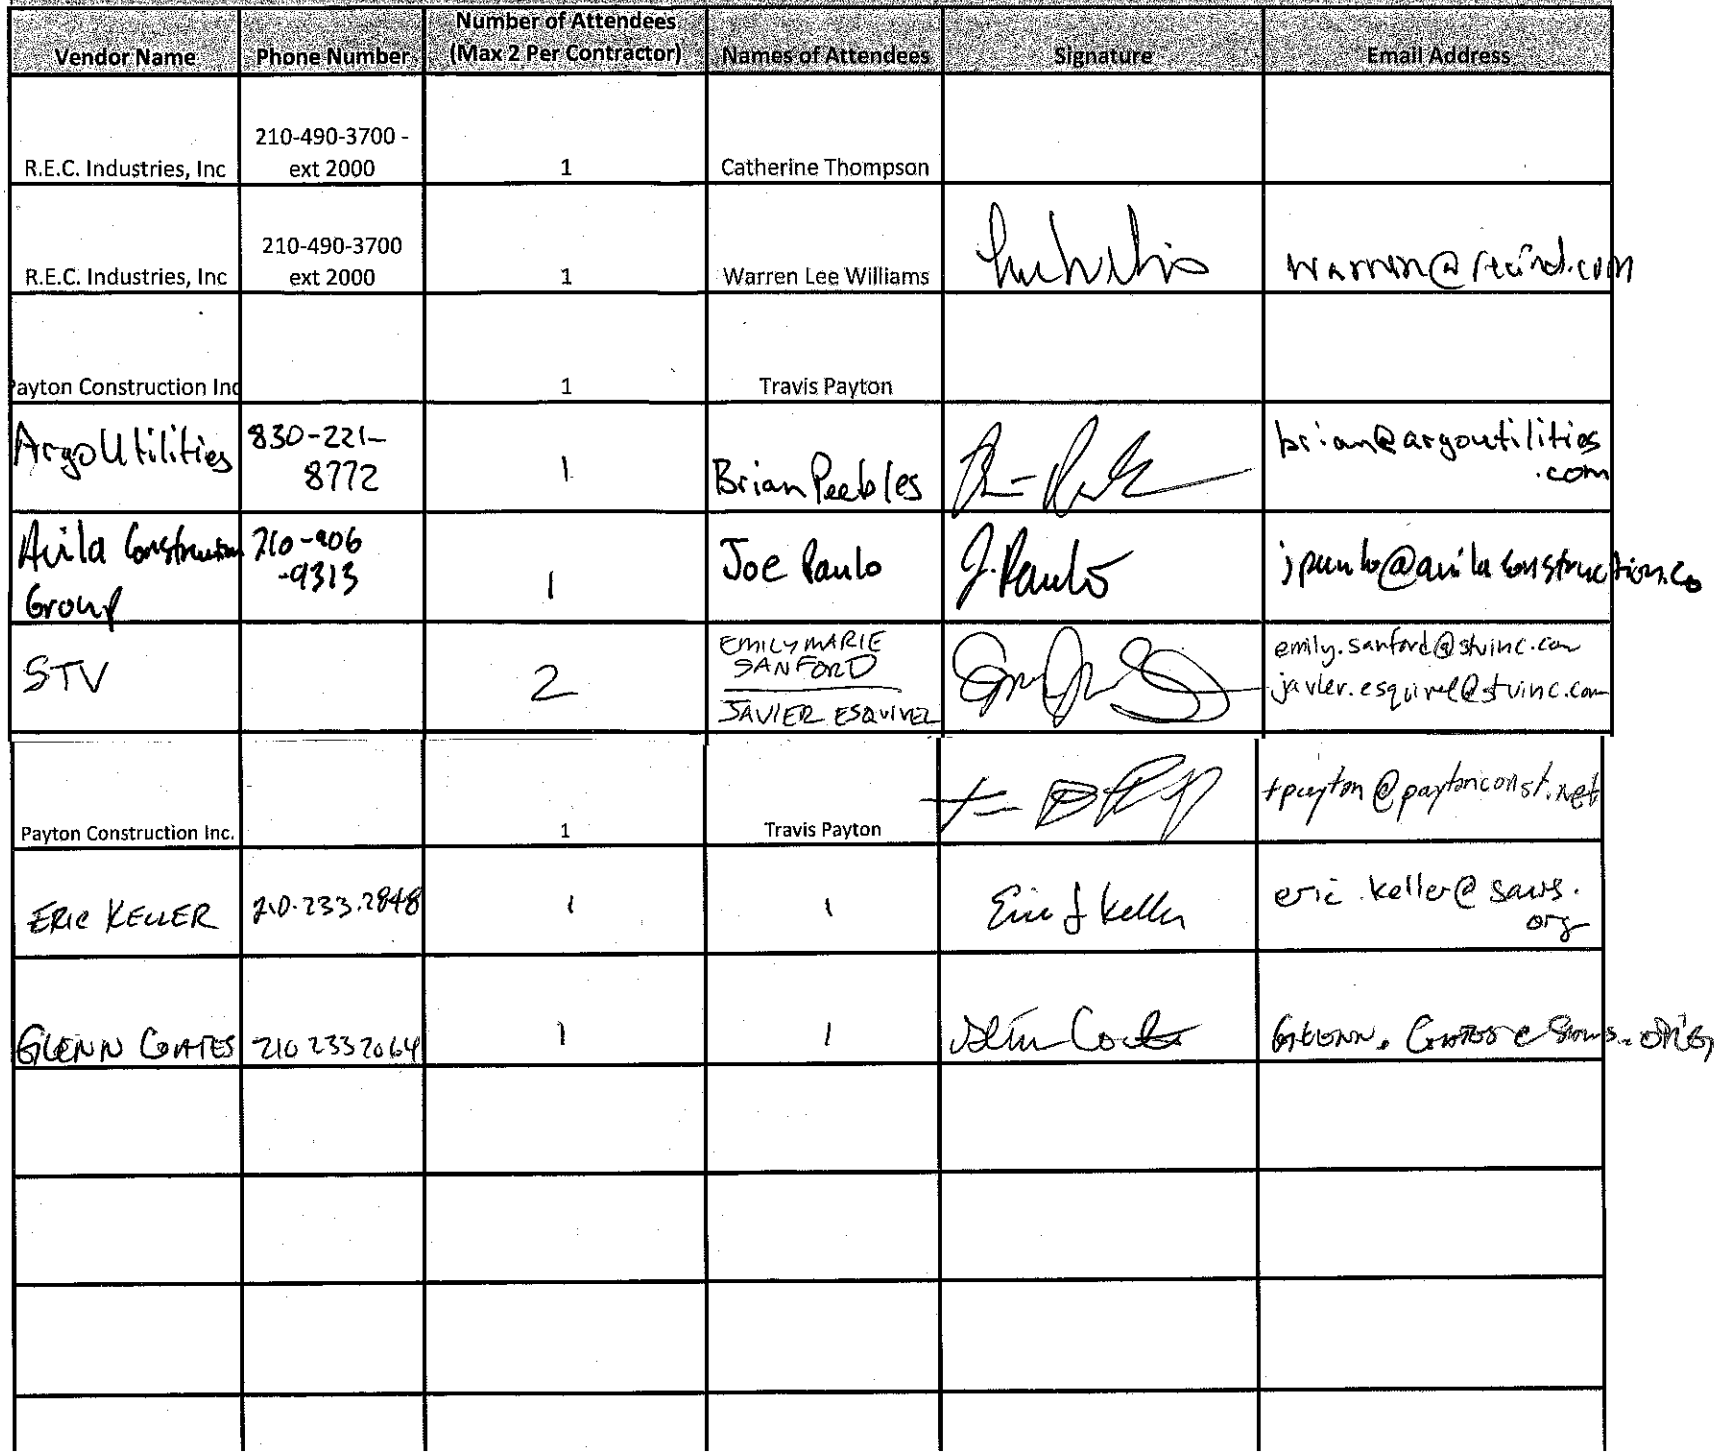 Vendor Name
Phone Number
Number of Attendees
(Max 2 Per Contractor)
Names of Attendees
Signature
Email Address
R.E.C. Industries, Inc
210-490-3700 -
ext 2000
1
Catherine Thompson
R.E.C. Industries, Inc
210-490-3700
ext 2000
1
Warren Lee Williams
warren@recind.com
Payton Construction Inc
1
Travis Payton
Argo Utilities
830-221-
8772
1
Brian Peebles
brian@argoutilities
.com
Avila Construction
Group
210-906
-9313
1
Joe Paulo
J. Paulo
jpaulo@avilaconstruction.co
STV
2
EMILY MARIE
SANFORD
JAVIER ESQUIVEL
emily.sanford@stvinc.com
javier.esquivel@stvinc.com
Payton Construction Inc.
1
Travis Payton
tpayton@paytonconst.net
ERIC KELLER
210.233.2848
1
1
Eric J Keller
eric.keller@saws.
org
GLENN COATES
210 233 2064
1
1
Glenn Coates
GLENN.COATES@SAWS.ORG